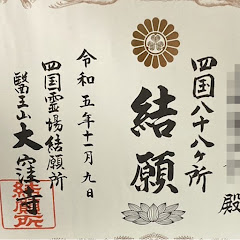 殿
四国八十八ヶ所
結願
令和五年十一月九日
四国霊場結願所
醫王山大窪寺
結願所